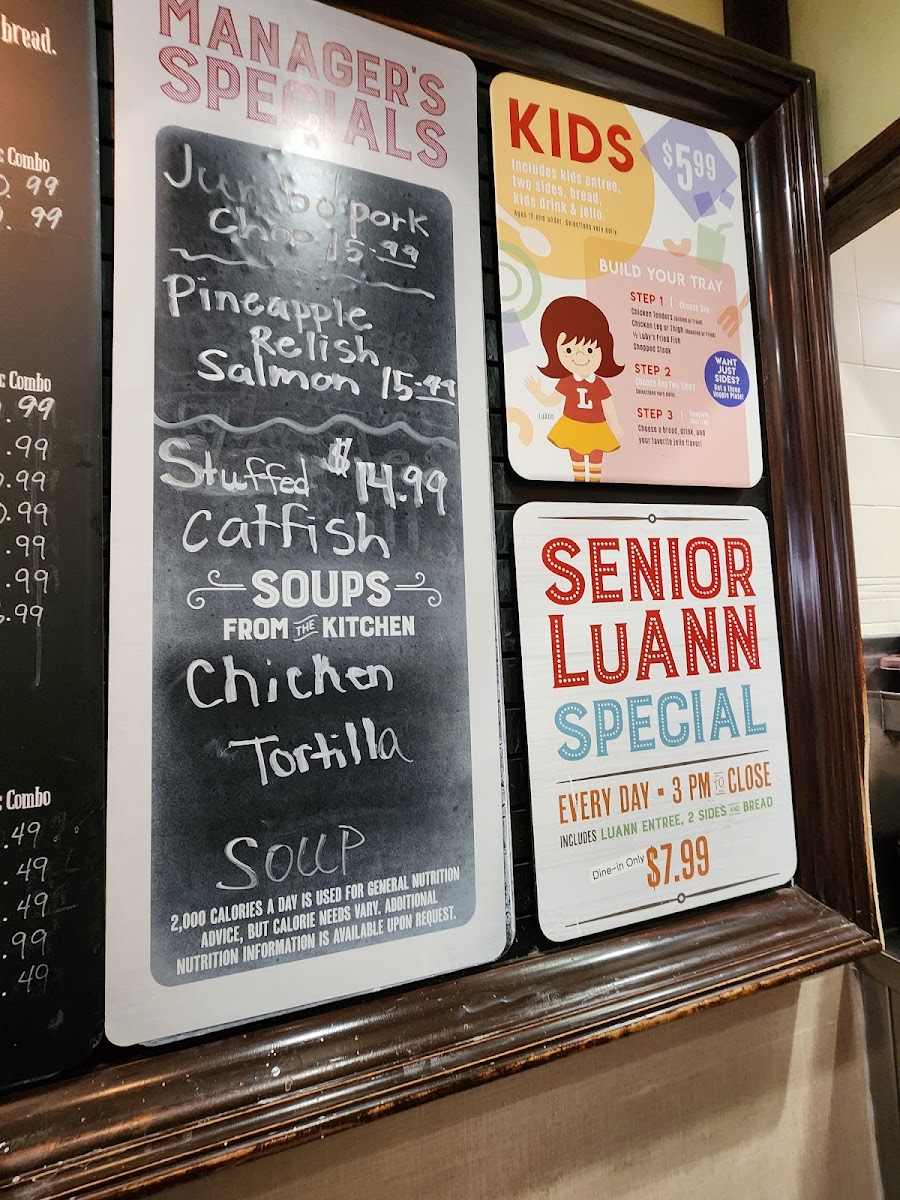 bread.
Combo
.99
.99
Combo
.99
.99
.99
.99
.99
.99
.99
Combo
.49
.49
.49
.99
.49
MANAGER'S
SPECIALS
Jumbo pork
Chop 15.99
Pineapple
Relish
Salmon 15.99
Stuffed $14.99
Catfish
SOUPS
FROM THE KITCHEN
Chicken
Tortilla
SOUP
2,000 CALORIES A DAY IS USED FOR GENERAL NUTRITION
ADVICE, BUT CALORIE NEEDS VARY. ADDITIONAL
NUTRITION INFORMATION IS AVAILABLE UPON REQUEST.
KIDS
$5.99
Includes kids entree,
two sides, bread,
kids drink & jello.
Selections vary daily.
BUILD YOUR TRAY
STEP 1 | Choose One
Chicken Tenders
Chicken Leg or Thigh
½ Luby's Fried Fish
Chopped Steak
STEP 2
Choose Any Two Sides
Selections vary daily.
STEP 3
Choose a bread, drink, and
your favorite jello flavor!
WANT
JUST
SIDES?
Get a three
Veggie Plate!
L
LUANN
SENIOR
LUANN
SPECIAL
EVERY DAY • 3 PM TO CLOSE
INCLUDES LUANN ENTREE, 2 SIDES AND BREAD
Dine-in Only $7.99